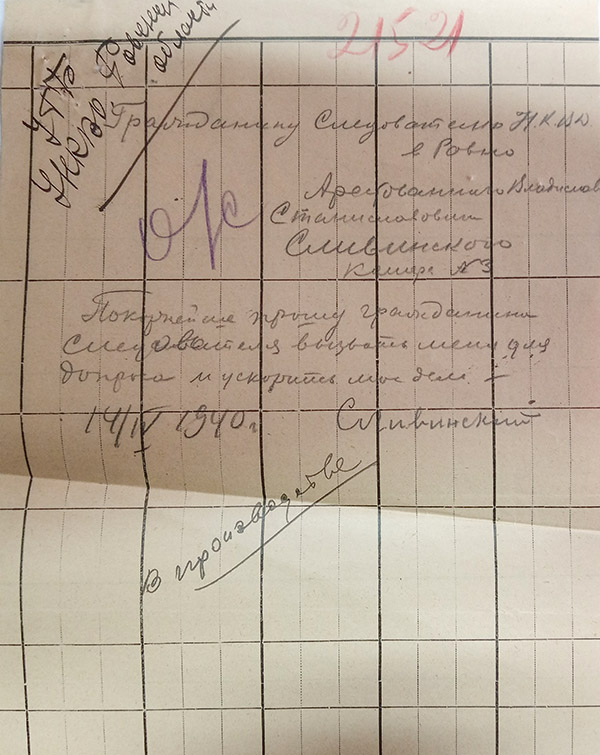 УГБ
УНКВД Ровенской
области
21521
Гражданину Следователю Н.К.В.Д.
в Ровно
о/с
Арестованного Владислав
Станиславович
Сливинского
Камера №3
Покорнейше прошу гражданина
Следователя вызвать меня для
допроса и ускорить мое дело. —
14/IV 1940 г.
Сливинский
В производстве